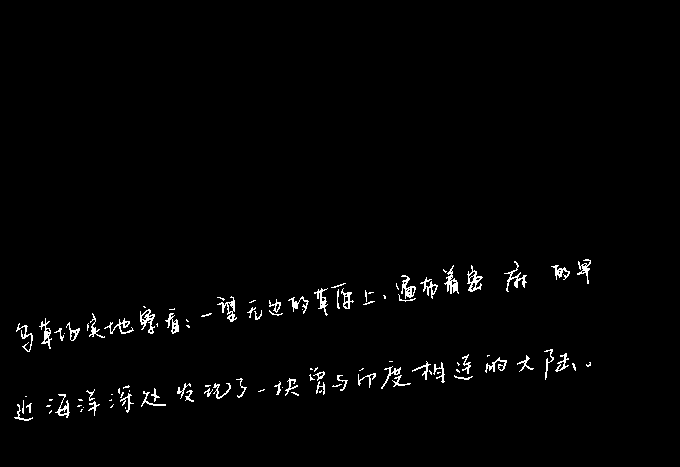 鸟草场实地察看：一望无边的草原上，遍布着密 麻 的旱
近海洋深处发现了一块曾与印度相连的大陆。